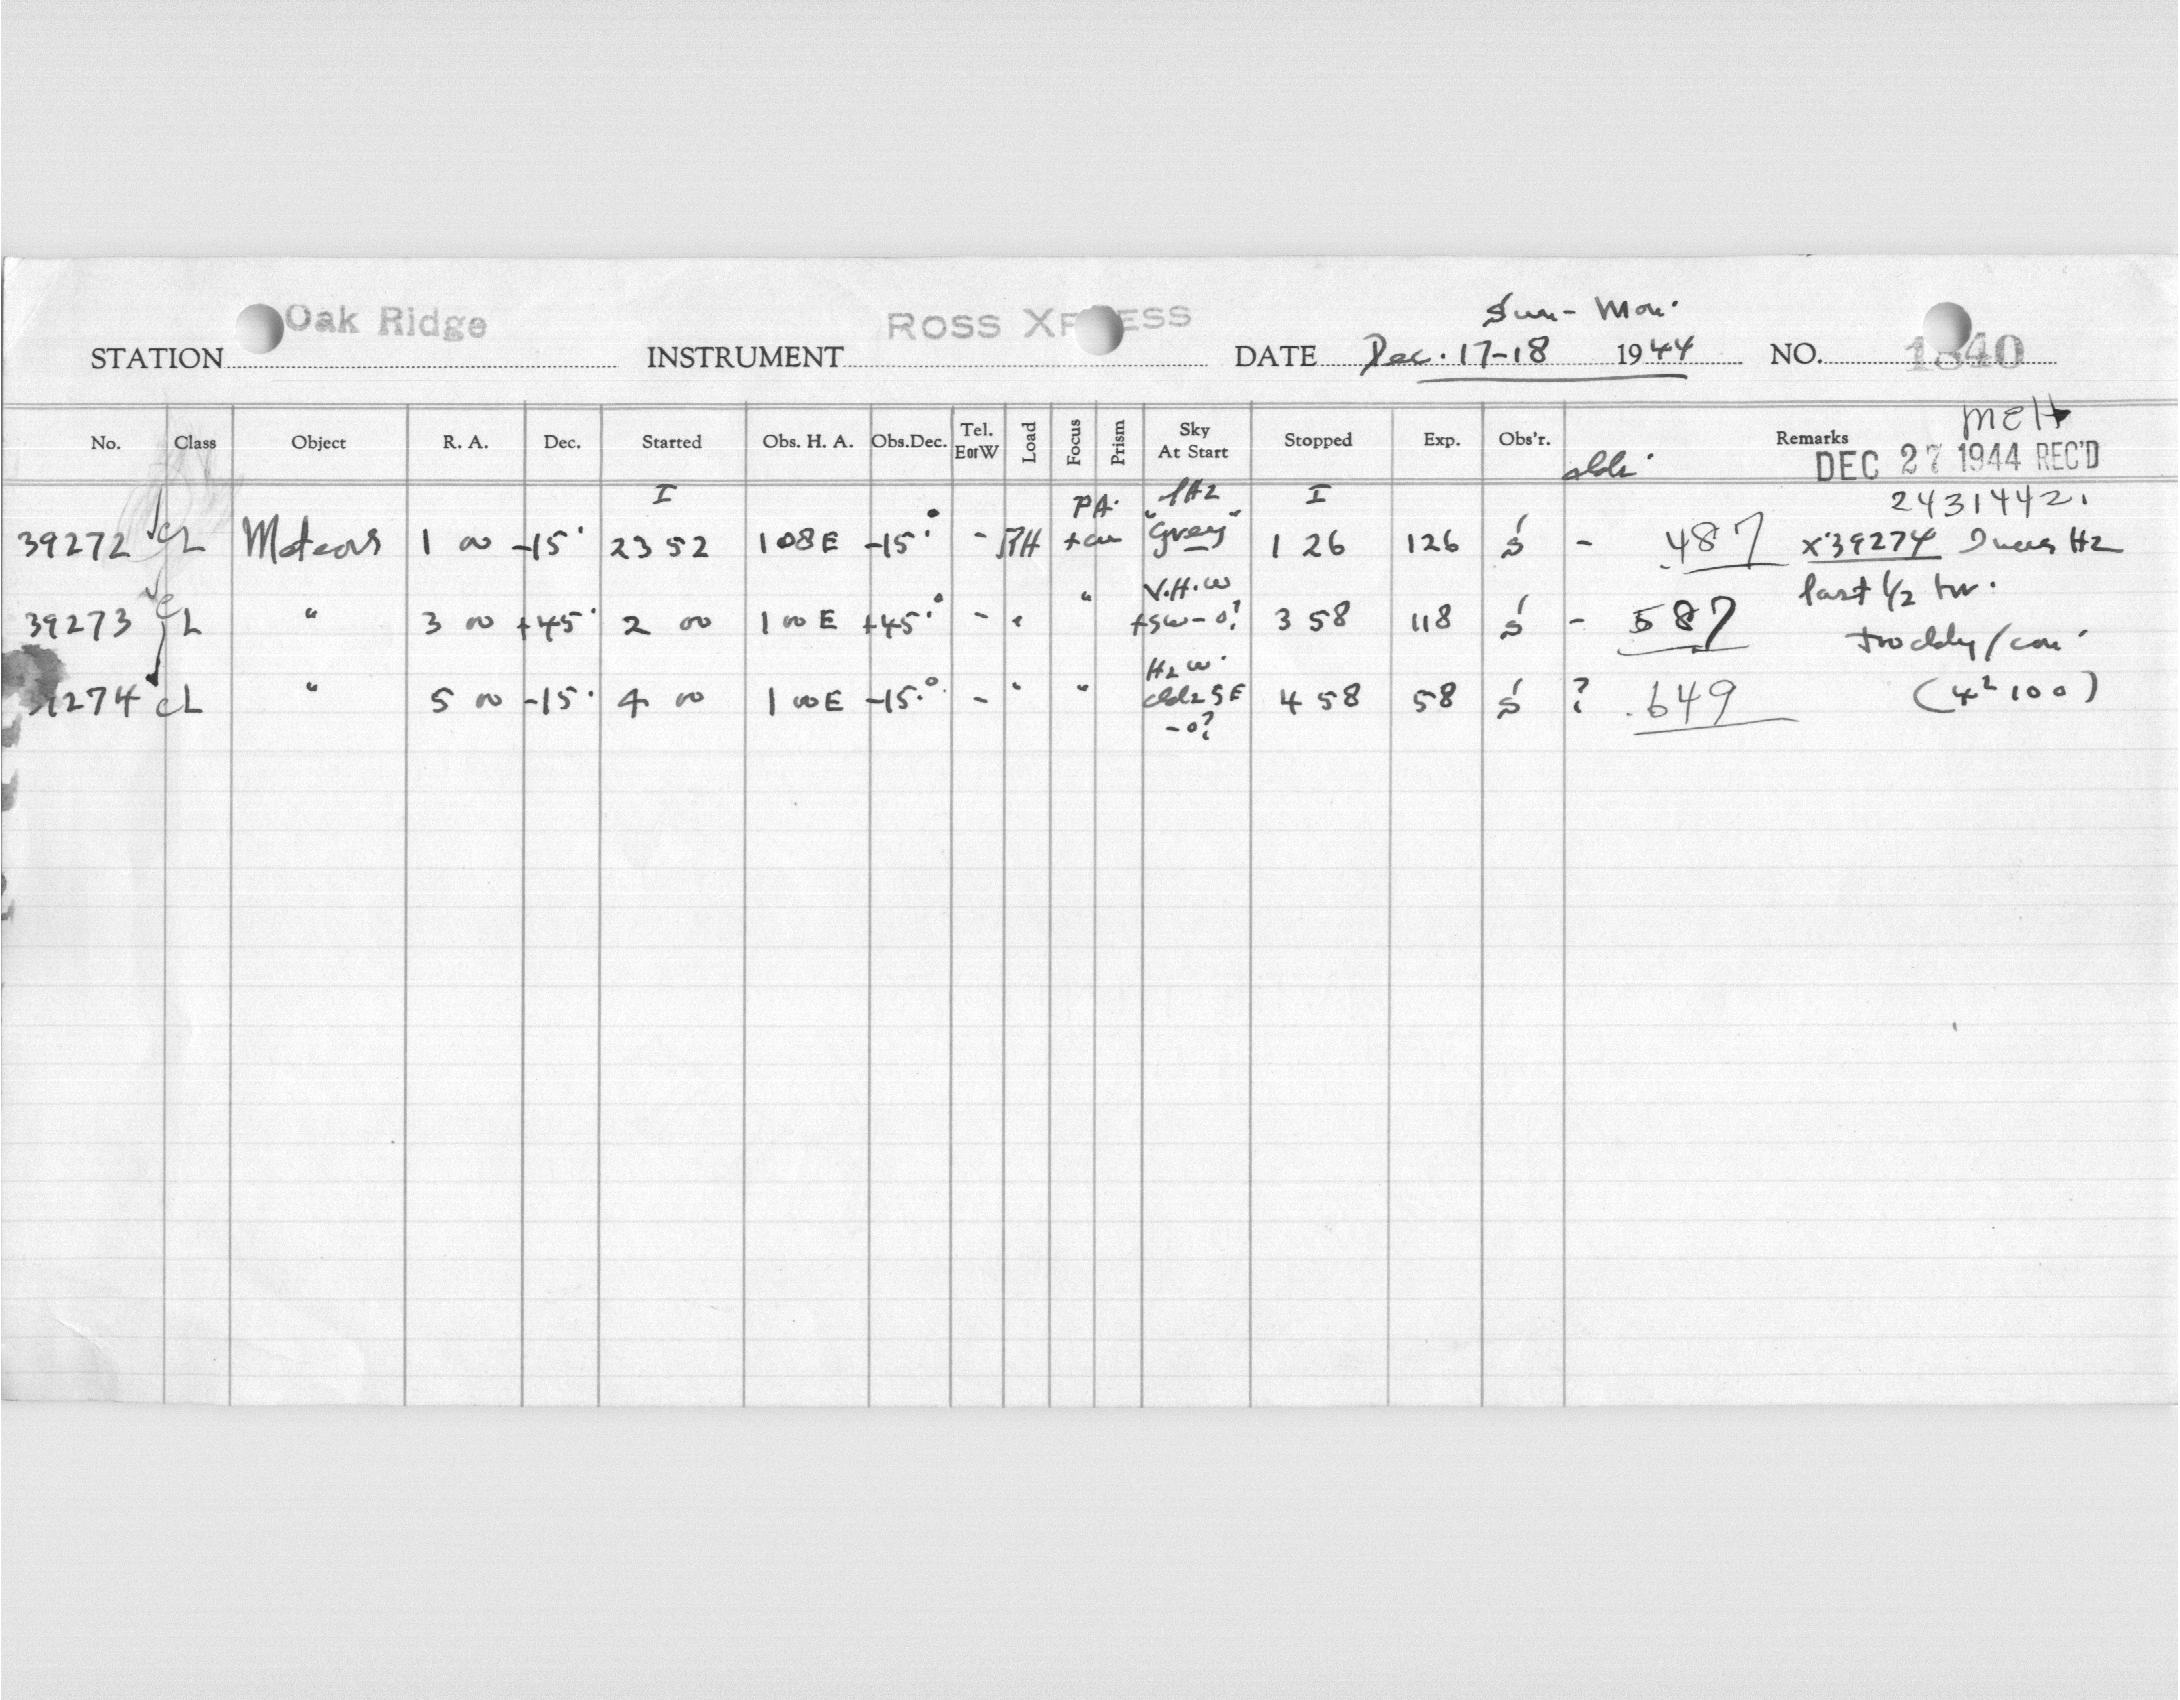 Oak Ridge ROSS XPRESS Sun - Mon.
STATION INSTRUMENT DATE Dec. 17-18 1944 NO. 1840
No. Class Object R. A. Dec. Started Obs. H. A. Obs.Dec. Tel. E or W Load Focus Prism Sky At Start Stopped Exp. Obs'r. Remarks
DEC 27 1944 REC'D
I PA. I 2431442.
39272 cL Meteors 1 00 -15° 2352 108E -15° - "Grey" 1 26 126 S - .487 x39274 Hz
V.H.W last 1/2 hr.
39273 cL " 3 00 +45° 2 00 1 00 E +45° - " " +SW-0? 3 58 118 S - .587
Hz W.
39274 cL " 5 00 -15° 4 00 1 00E -15° - " " SE 4 58 58 S ? .649 (4² 100)
-0?